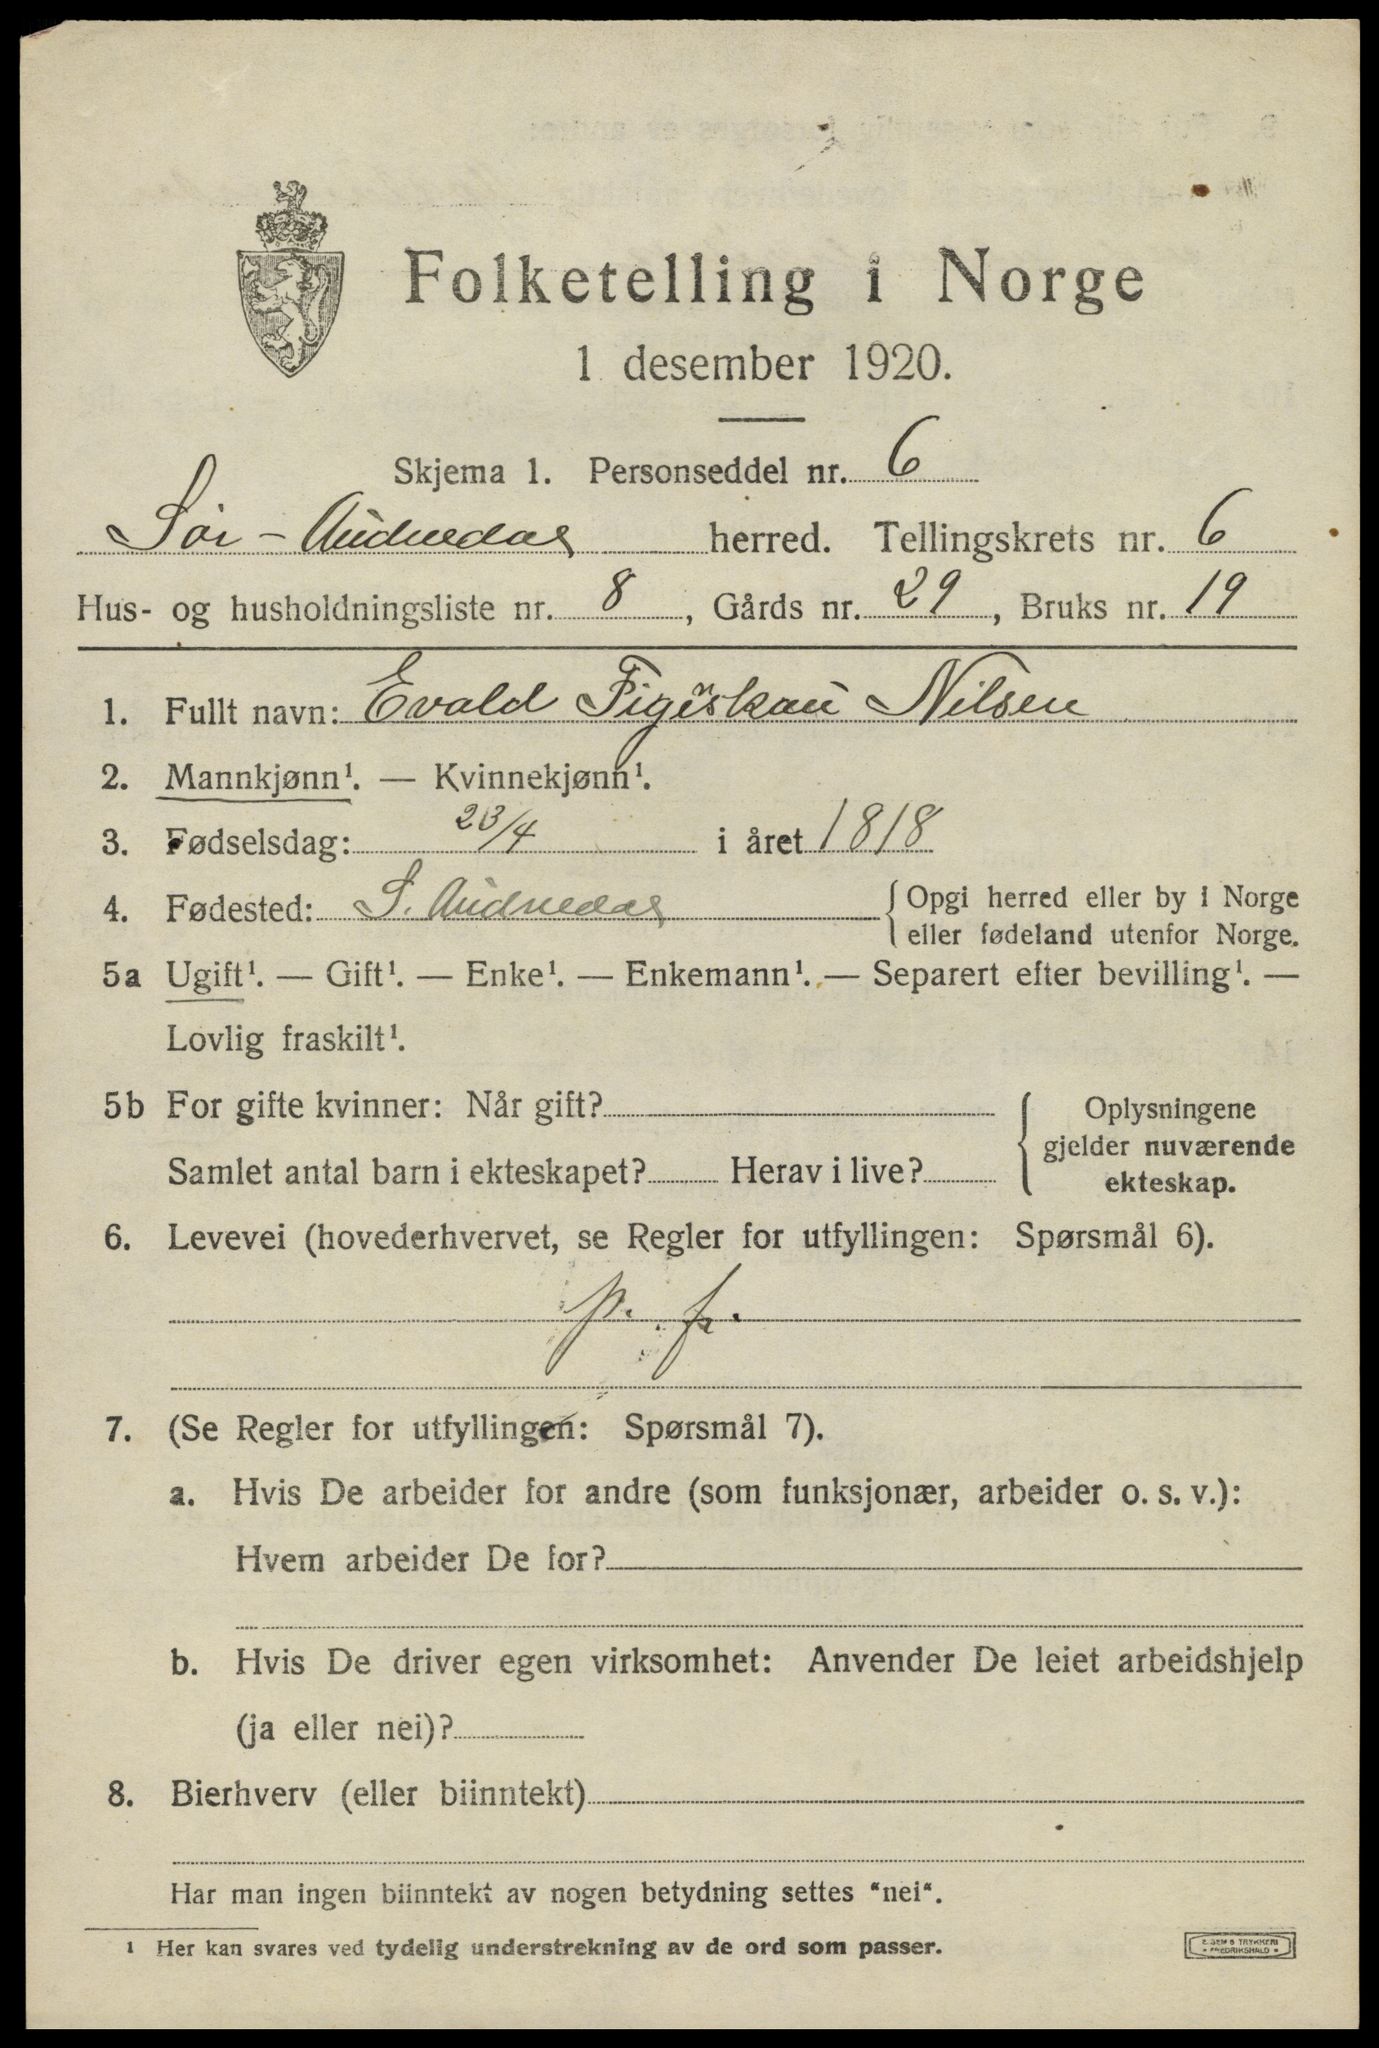 Folketelling i Norge
1 desember 1920.
Skjema 1. Personseddel nr. 6
Sør-Audnedal herred. Tellingskrets nr. 6
Hus- og husholdningsliste nr. 8, Gårds nr. 29, Bruks nr. 19
1. Fullt navn: Evald Nilsen
2. Mannkjønn¹. — Kvinnekjønn¹.
3. Fødselsdag: 23/4 i året 1818
4. Fødested: S. Audnedal {Opgi herred eller by i Norge
eller fødeland utenfor Norge.
5a Ugift¹. — Gift¹. — Enke¹. — Enkemann¹. — Separert efter bevilling¹. —
Lovlig fraskilt¹.
5b For gifte kvinner: Når gift? { Oplysningene
gjelder nuværende
Samlet antal barn i ekteskapet? Herav i live?
ekteskap.
6. Levevei (hovederhvervet, se Regler for utfyllingen: Spørsmål 6).
p. f.
7. (Se Regler for utfyllingen: Spørsmål 7).
a. Hvis De arbeider for andre (som funksjonær, arbeider o. s. v.):
Hvem arbeider De for?
b. Hvis De driver egen virksomhet: Anvender De leiet arbeidshjelp
(ja eller nei)?
8. Bierhverv (eller biinntekt)
Har man ingen biinntekt av nogen betydning settes "nei".
¹ Her kan svares ved tydelig understrekning av de ord som passer.
E. SEM'S TRYKKERI
• FREDRIKSHALD •